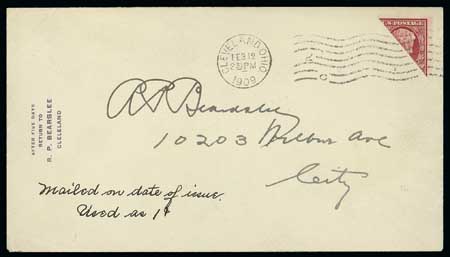 AFTER FIVE DAYS
RETURN TO
R. P. BEARSLEE
CLELELAND
CLEVELAND, OHIO
FEB 12
1909
POSTAGE
R P Beardslee
10203 Wilbur Ave
City
Mailed on date of issue.
Used as 1¢